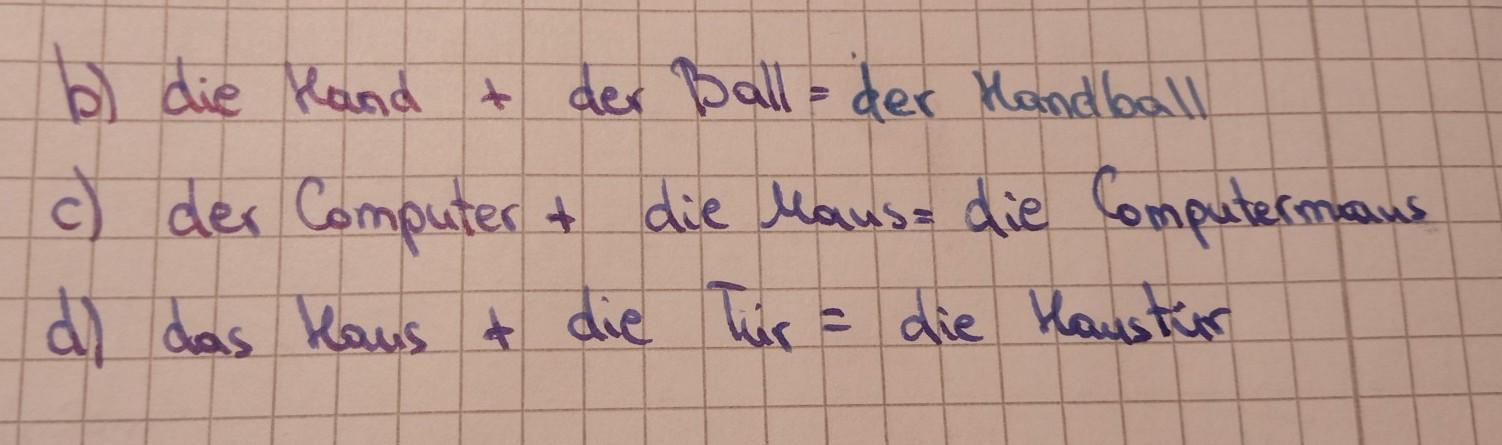 b) die Hand + der Ball = der Handball
c) der Computer + die Maus = die Computermaus
d) das Haus + die Tür = die Haustür